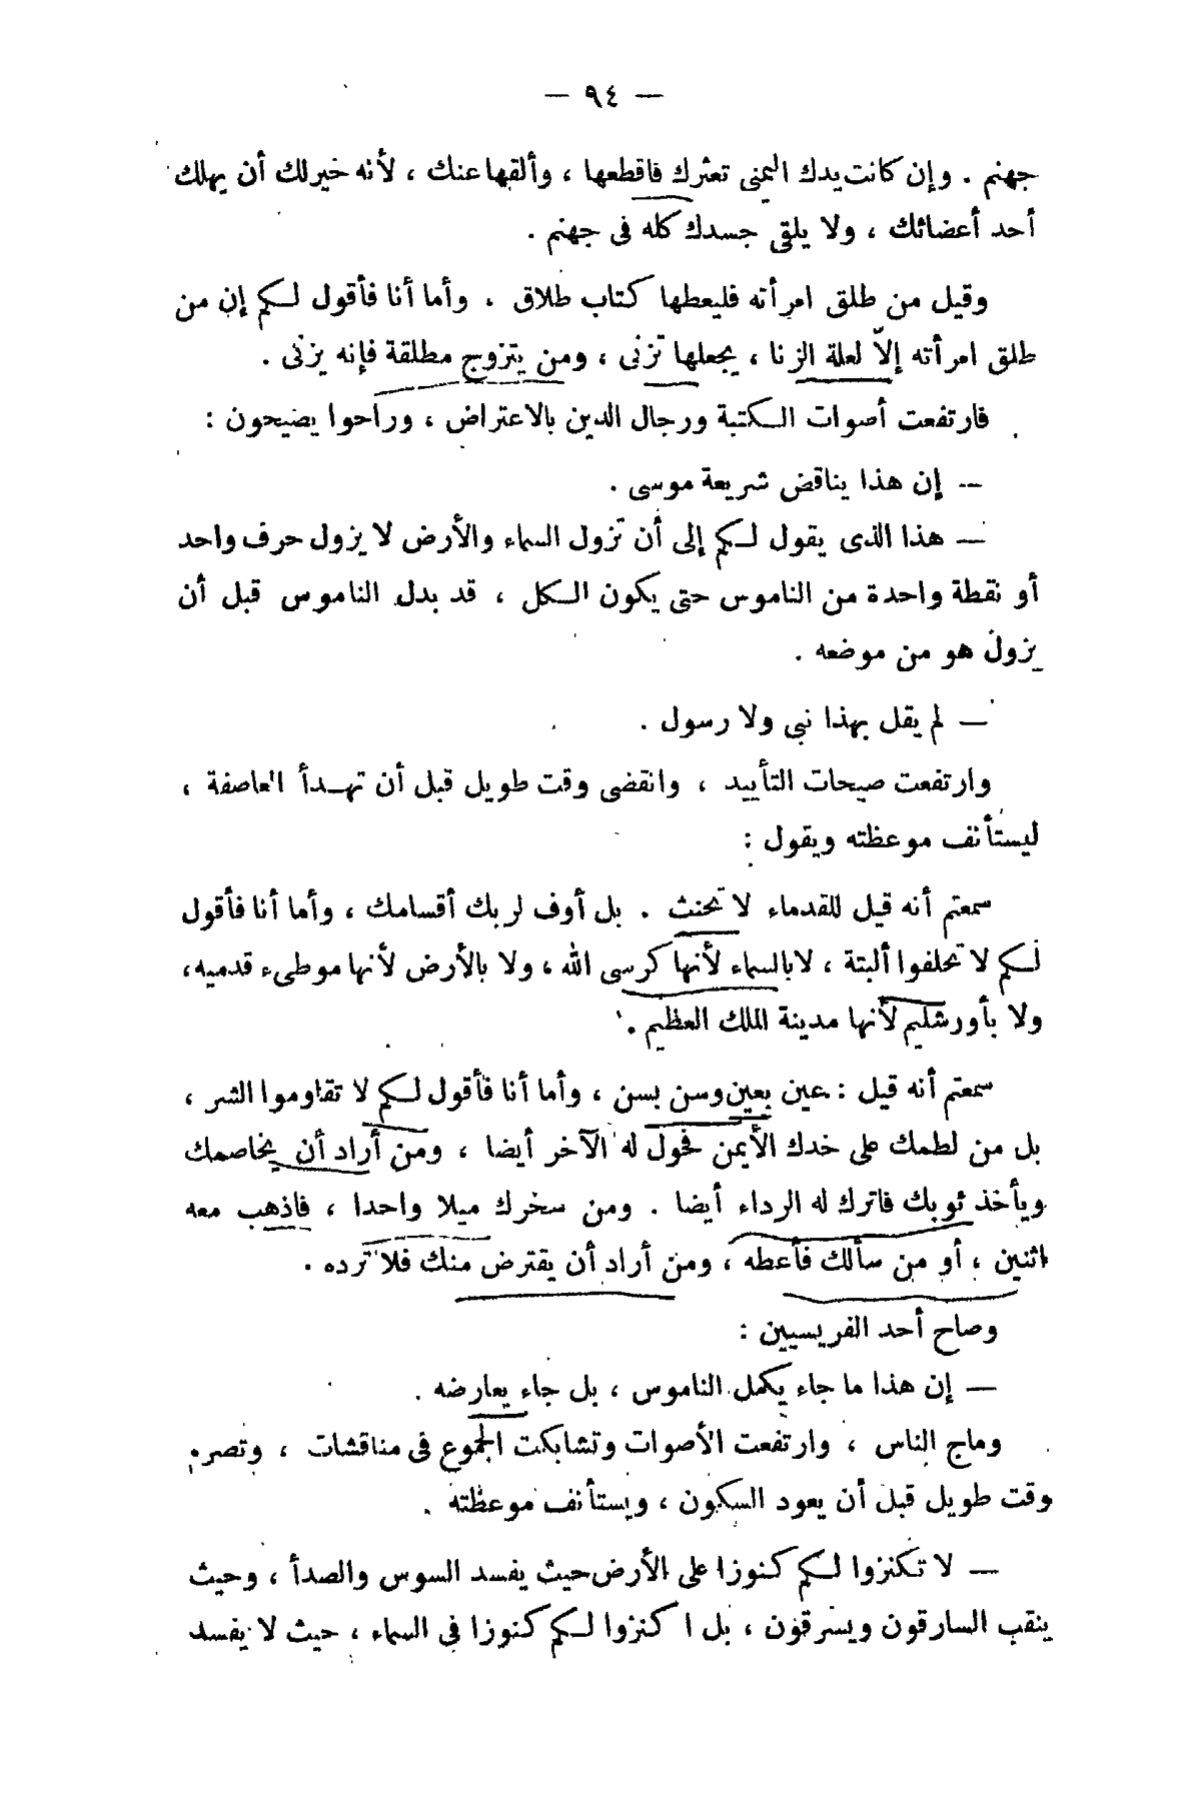 — ٩٤ —
جهنم . وإن كانت يدك اليمنى تعثرك فاقطعها ، وألقها عنك ، لأنه خير لك أن يهلك
أحد أعضائك ، ولا يلقى جسدك كله فى جهنم .
وقيل من طلق امرأته فليعطها كتاب طلاق . وأما أنا فأقول لكم إن من
طلق امرأته إلاّ لعلة الزنا ، يجعلها تزنى ، ومن يتزوج مطلقة فإنه يزنى .
فارتفعت أصوات الكتبة ورجال الدين بالاعتراض ، وراحوا يضيحون :
— إن هذا يناقض شريعة موسى .
— هذا الذى يقول لكم إلى أن تزول السماء والأرض لا يزول حرف واحد
أو نقطة واحدة من الناموس حتى يكون الكل ، قد بدل الناموس قبل أن
يزول هو من موضعه .
— لم يقل بهذا نبى ولا رسول .
وارتفعت صيحات التأييد ، وانقضى وقت طويل قبل أن تهدأ العاصفة ،
ليستأنف موعظته ويقول :
سمعتم أنه قيل للقدماء لا تحنث . بل أوف لربك أقسامك ، وأما أنا فأقول
لكم لا تحلفوا ألبتة ، لا بالسماء لأنها كرسى الله ، ولا بالأرض لأنها موطىء قدميه ،
ولا بأورشليم لأنها مدينة الملك العظيم .
سمعتم أنه قيل : عين بعين وسن بسن ، وأما أنا فأقول لكم لا تقاوموا الشر ،
بل من لطمك على خدك الأيمن فحول له الآخر أيضا ، ومن أراد أن يخاصمك
ويأخذ ثوبك فاترك له الرداء أيضا . ومن سخرك ميلا واحدا ، فاذهب معه
اثنين ، أو من سألك فأعطه ، ومن أراد أن يقترض منك فلا ترده .
وصاح أحد الفريسيين :
— إن هذا ما جاء يكمل الناموس ، بل جاء يعارضه .
وماج الناس ، وارتفعت الأصوات وتشابكت الجموع فى مناقشات ، وتصرم
وقت طويل قبل أن يعود السكون ، ويستأنف موعظته .
— لا تكنزوا لكم كنوزا على الأرض حيث يفسد السوس والصدأ ، وحيث
ينقب السارقون ويسرقون ، بل ا كنزوا لكم كنوزا فى السماء ، حيث لا يفسد